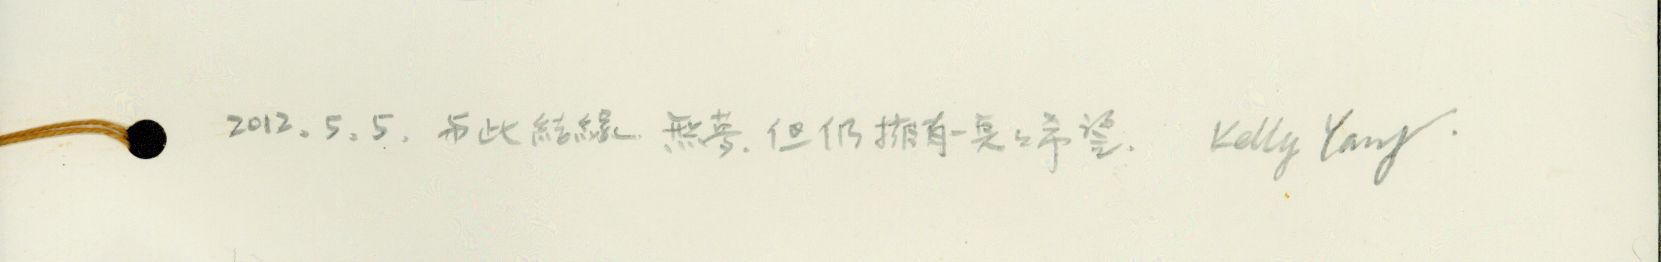 2012.5.5. 与此結緣 無夢.但仍擁有一點點希望. Kelly Yang.